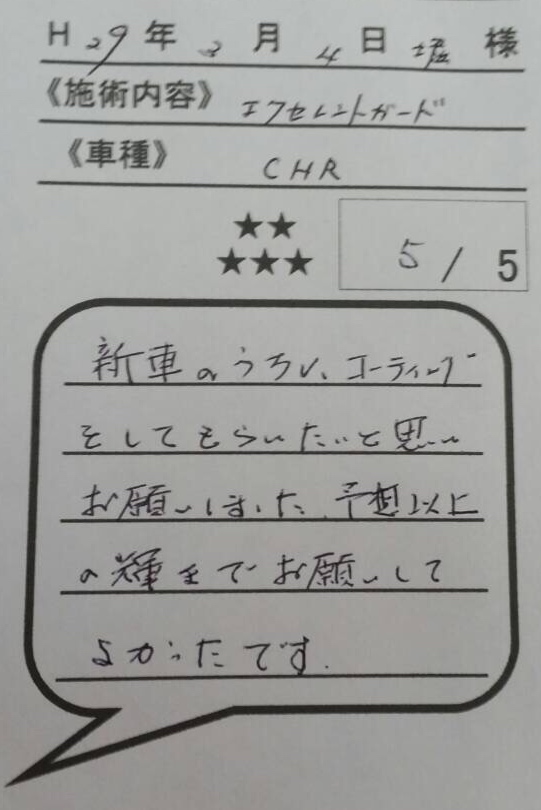 H29年3月4日 堀 様
《施術内容》 エクセレントガード
《車種》 CHR
★★
★★★ 5/5
新車のうちに、コーティング
をしてもらいたいと思い
お願いしました。予想以上
の輝きでお願いして
よかったです.